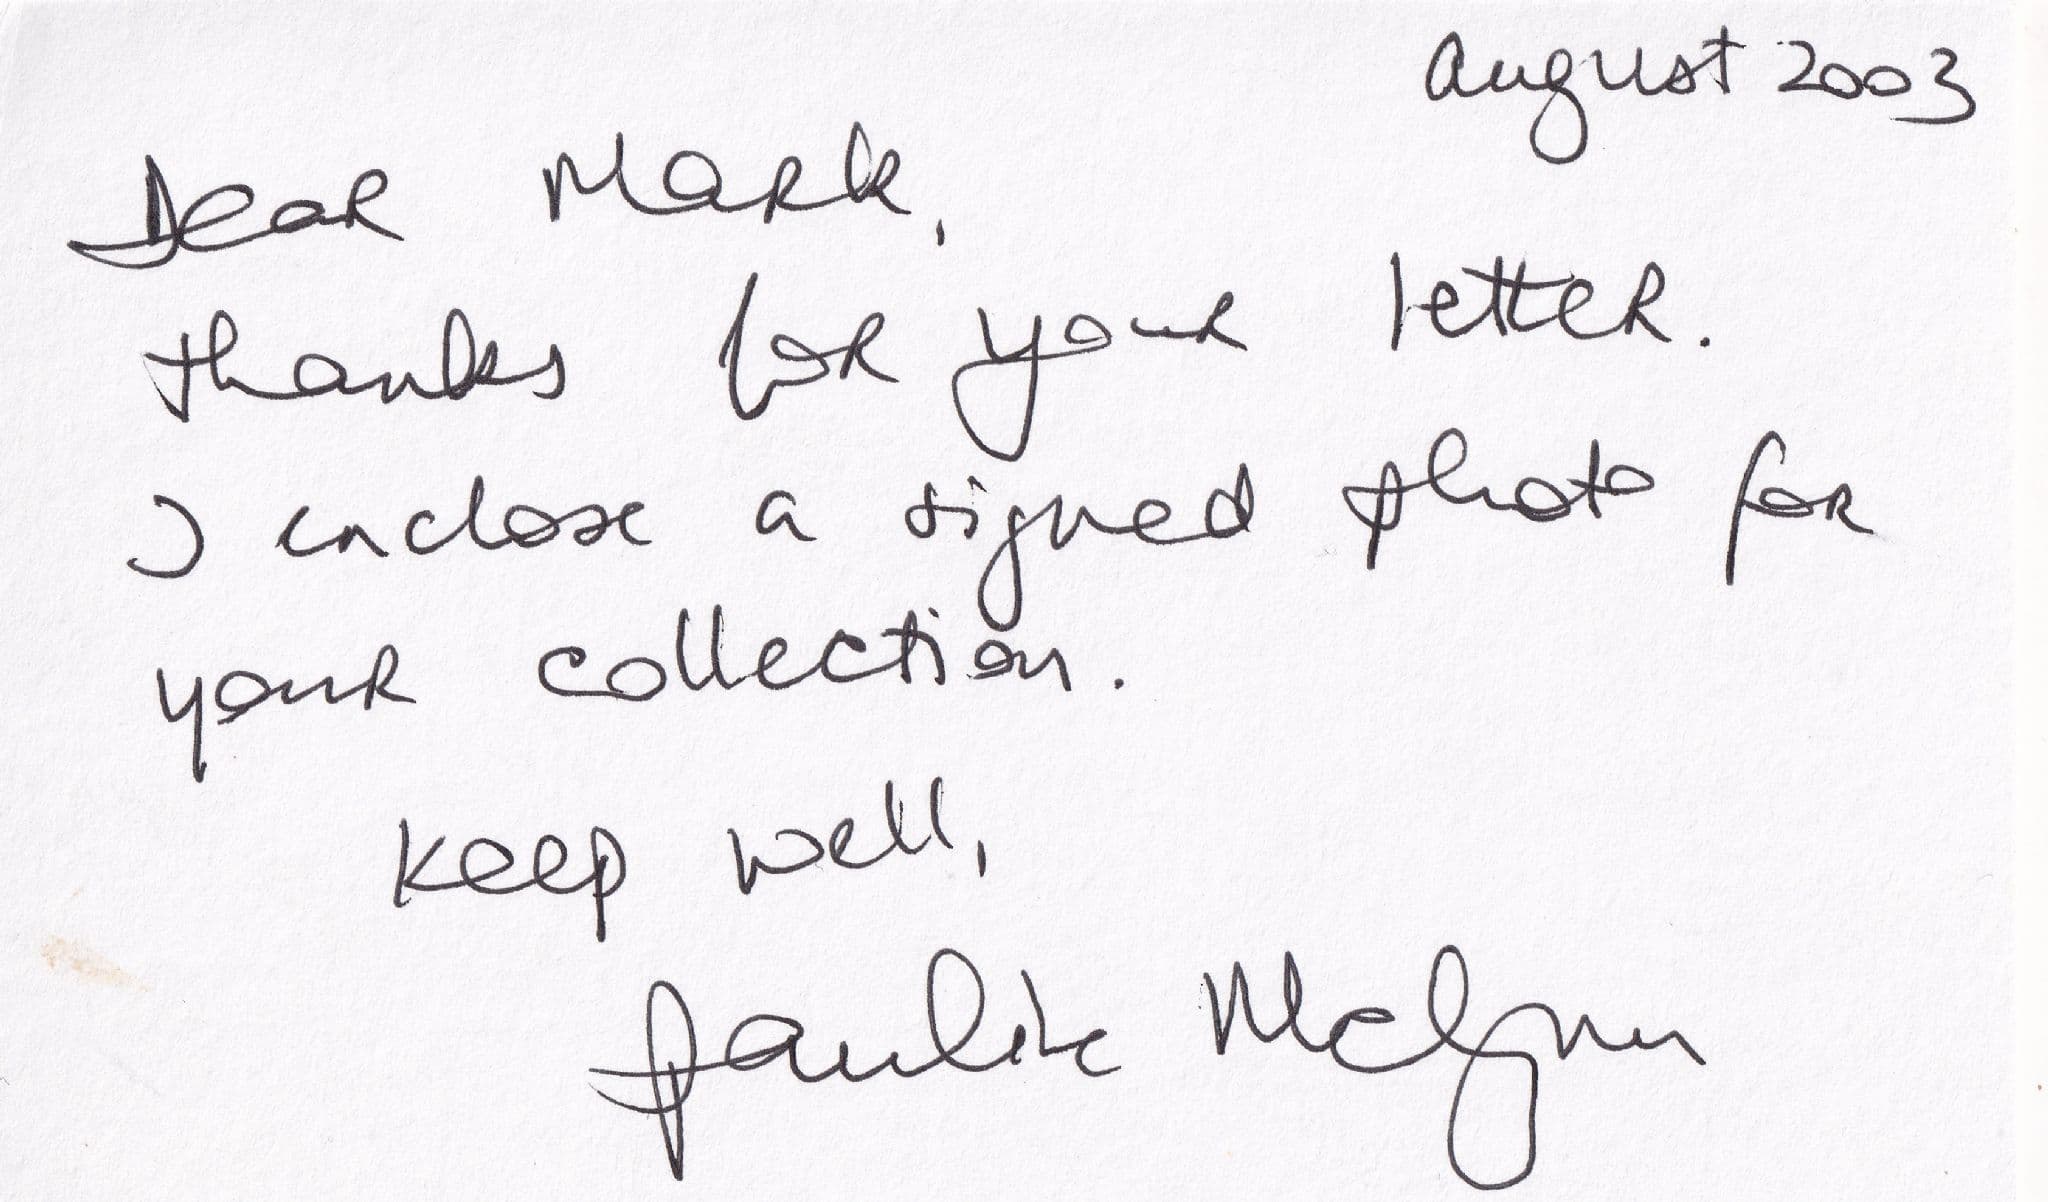 August 2003
Dear Mark,
thanks for your letter.
I enclose a signed photo for
your collection.
Keep well,
Pauline McLynn